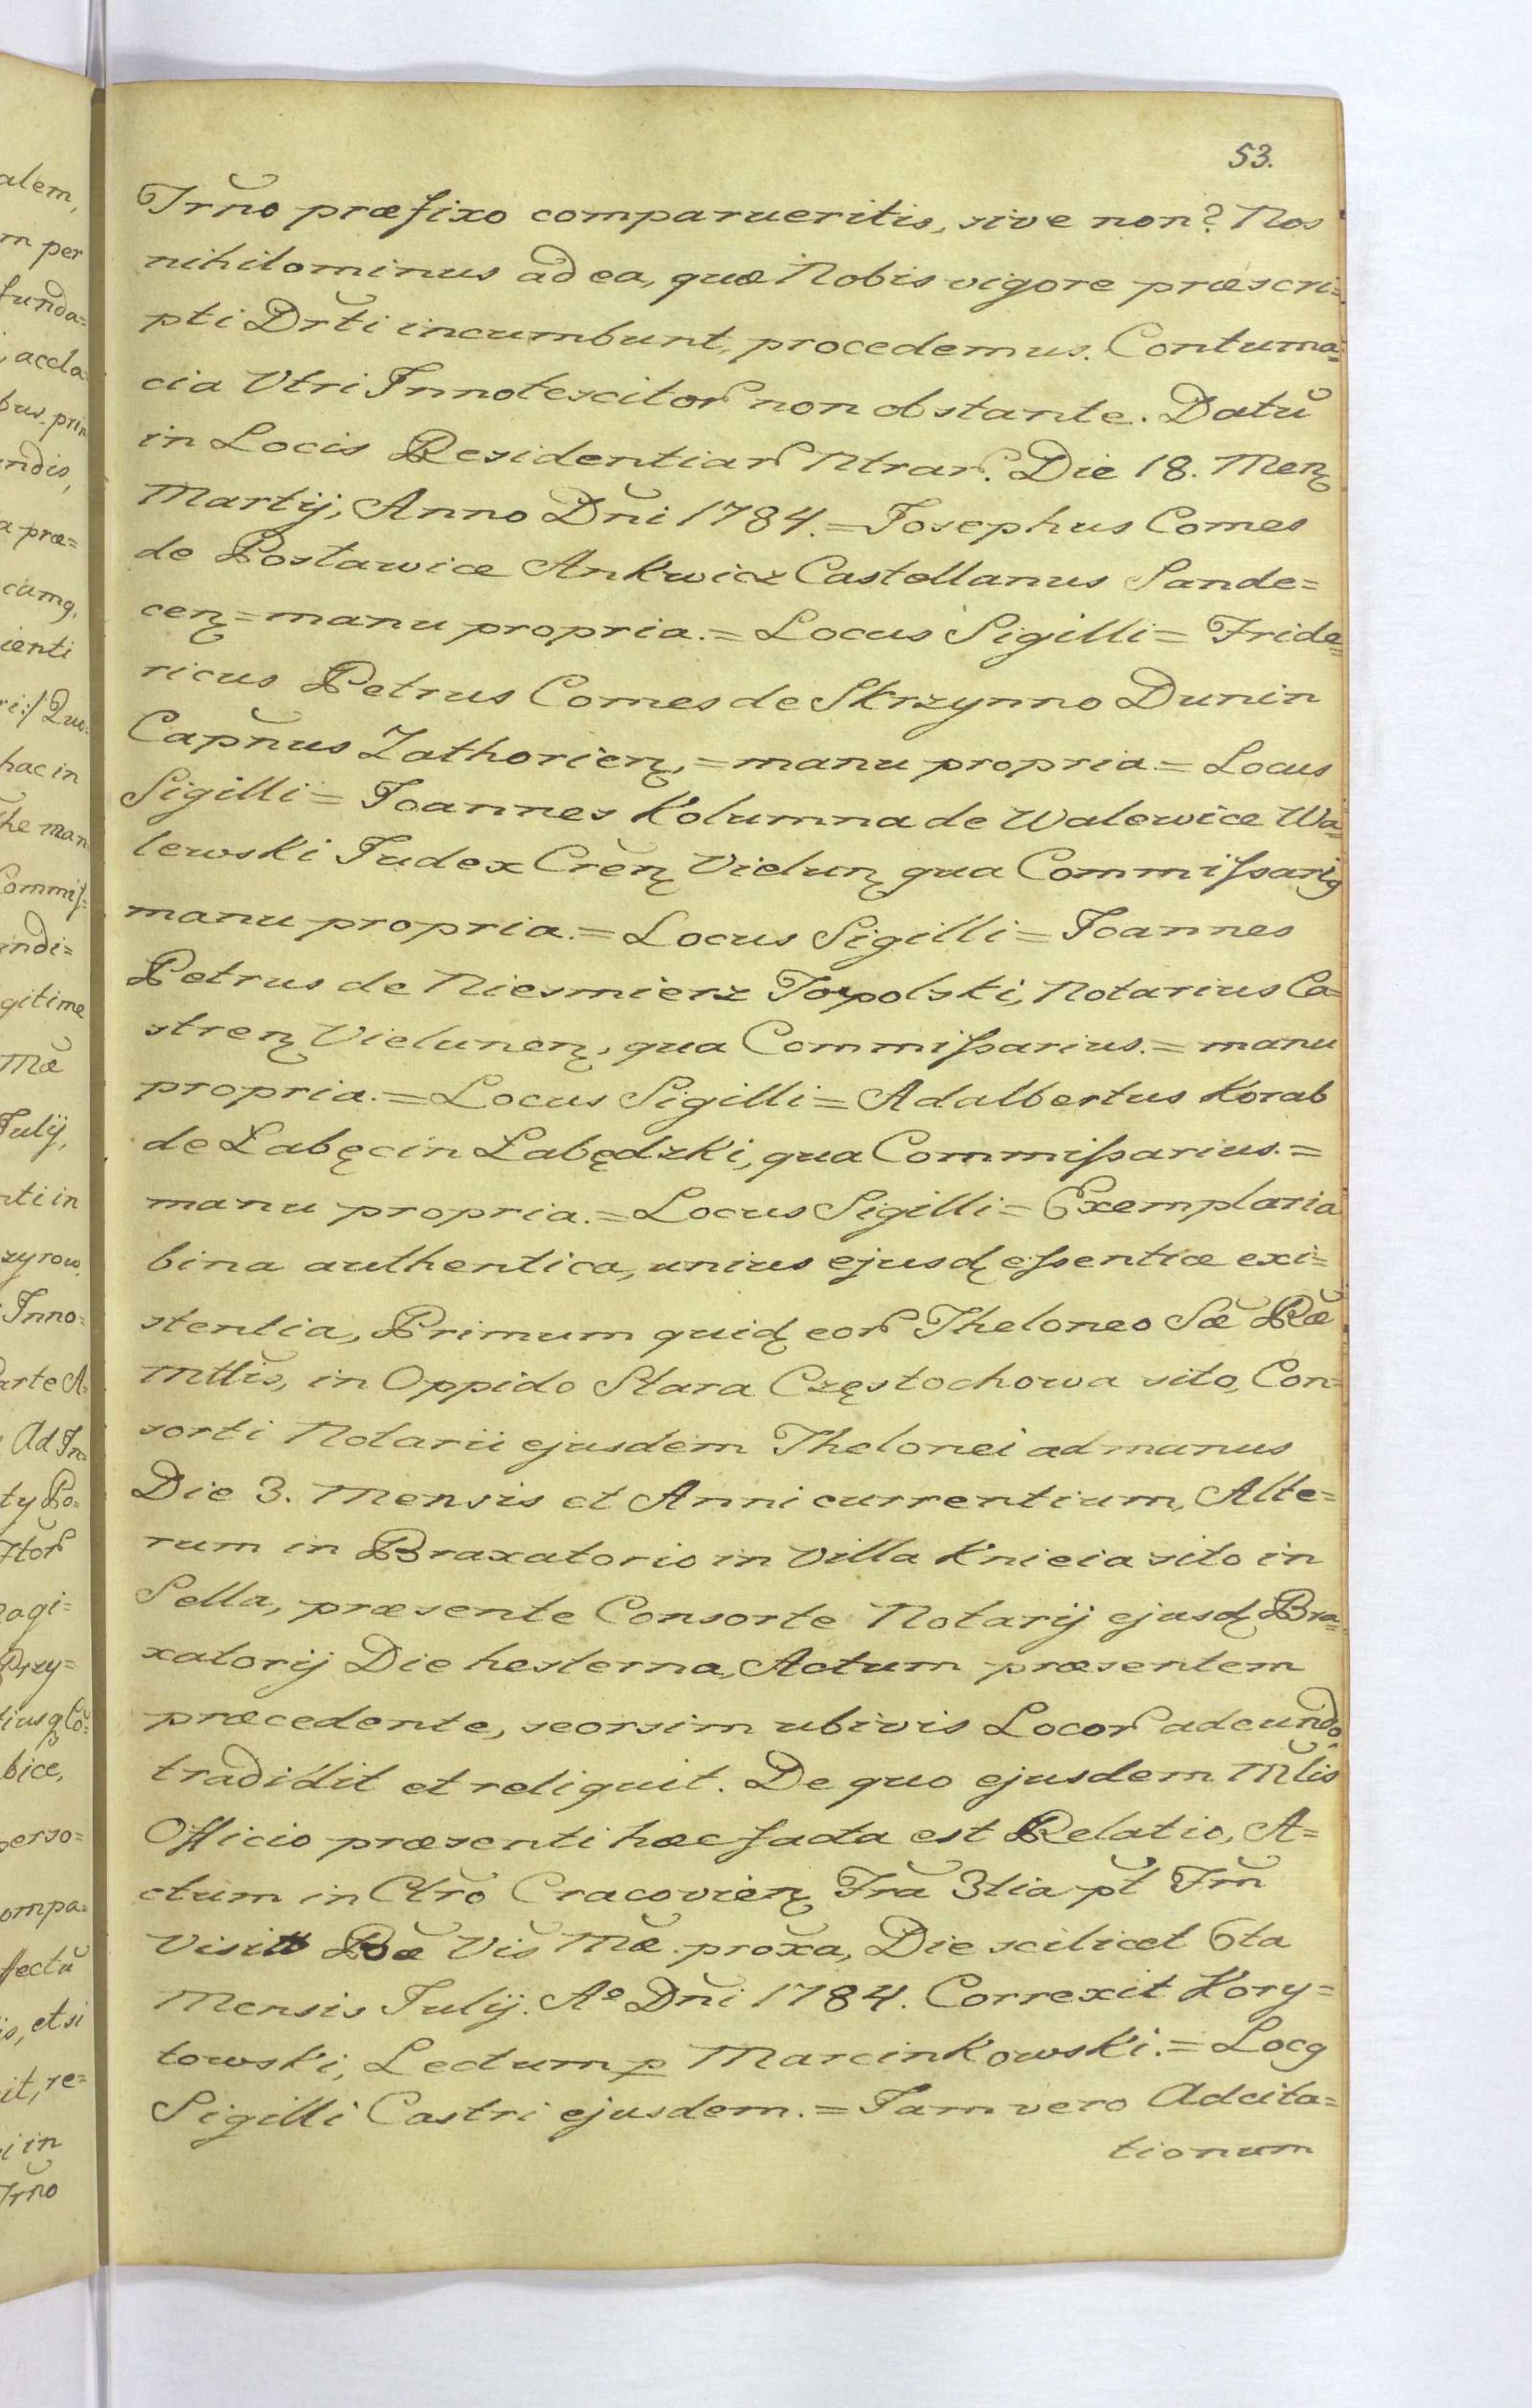 53.
Trño præfixo comparueritis, sive non? Nos
nihilominus ad ea, quæ Nobis vigore præscri=
pti Drti incumbunt, procedemus. Contuma=
cia Vtri Innotescitor non obstante. Datũ
in Locis Residentiar Ntrar. Die 18. Menȝ
Martij, Anno Dñi 1784. = Josephus Comes
de Postawice Ankwicz Castellanus Sande=
cenȝ = manu propria. = Locus Sigilli = Fride=
ricus Petrus Comes de Skrzynno Dunin
Capñus Zathorienȝ, = manu propria = Locus
Sigilli = Joannes Kolumna de Walewice Wa=
lewski Judex Crenȝ Vielunȝ qua Commiſsari9
manu propria. = Locus Sigilli = Joannes
Petrus de Niesmierz Topolski, Notarius Ca=
strenȝ Vielunenȝ, qua Commiſsarius. = manu
propria. = Locus Sigilli = Adalbertus Korab
de Łabęcin Łabędzki, qua Commiſsarius. =
manu propria. = Locus Sigilli = Exemplaria
bina authentica, unius ejusdȝ eſsentiæ exi=
stentia, Primum quidȝ eor Theloneo Sæ Ræ
Mttis, in Oppido Stara Częstochowa sito, Con=
sorti Notarii ejusdem Thelonei ad manus
Die 3. Mensis et Anni currentium, Alte=
rum in Braxatorio in Villa Knieia sito in
Sella, præsente Consorte Notarij ejusdȝ Bra=
xatorij Die hesterna, Actum præsentem
præcedente, seorsim ubivis Locor adeundo,
tradidit et reliquit. De quo ejusdem Mlis
Officio præsenti hæc facta est Relatio, A=
ctum in Ctro Cracovienȝ Fra 3tia pt Fm
Visitt Bæ Vis Mæ proxa, Die scilicet 6ta
Mensis Julij. Aº Dñi 1784. Correxit Kory=
towski, Lectum p Marcinkowski. = Loc9
Sigilli Castri ejusdem. = Jam vero Adcita=
tionum